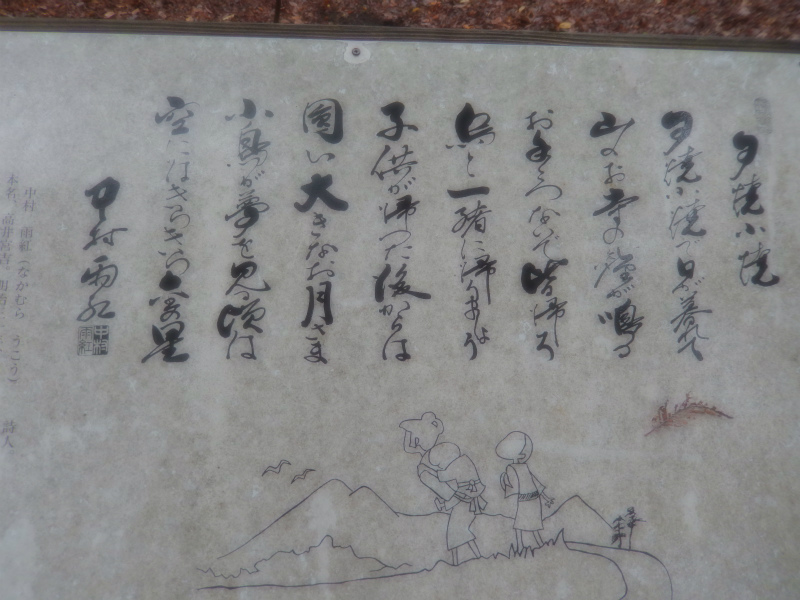 夕焼小焼
夕焼小焼で日が暮れて
山のお寺の鐘が鳴る
お手々つないで皆帰ろ
烏と一緒に帰りませう
子供が帰った後からは
圓い大きなお月さま
小鳥が夢を見る頃は
空にはきらきら金の星
中村雨紅
中村 雨紅（なかむら うこう）
詩人
本名、高井宮吉